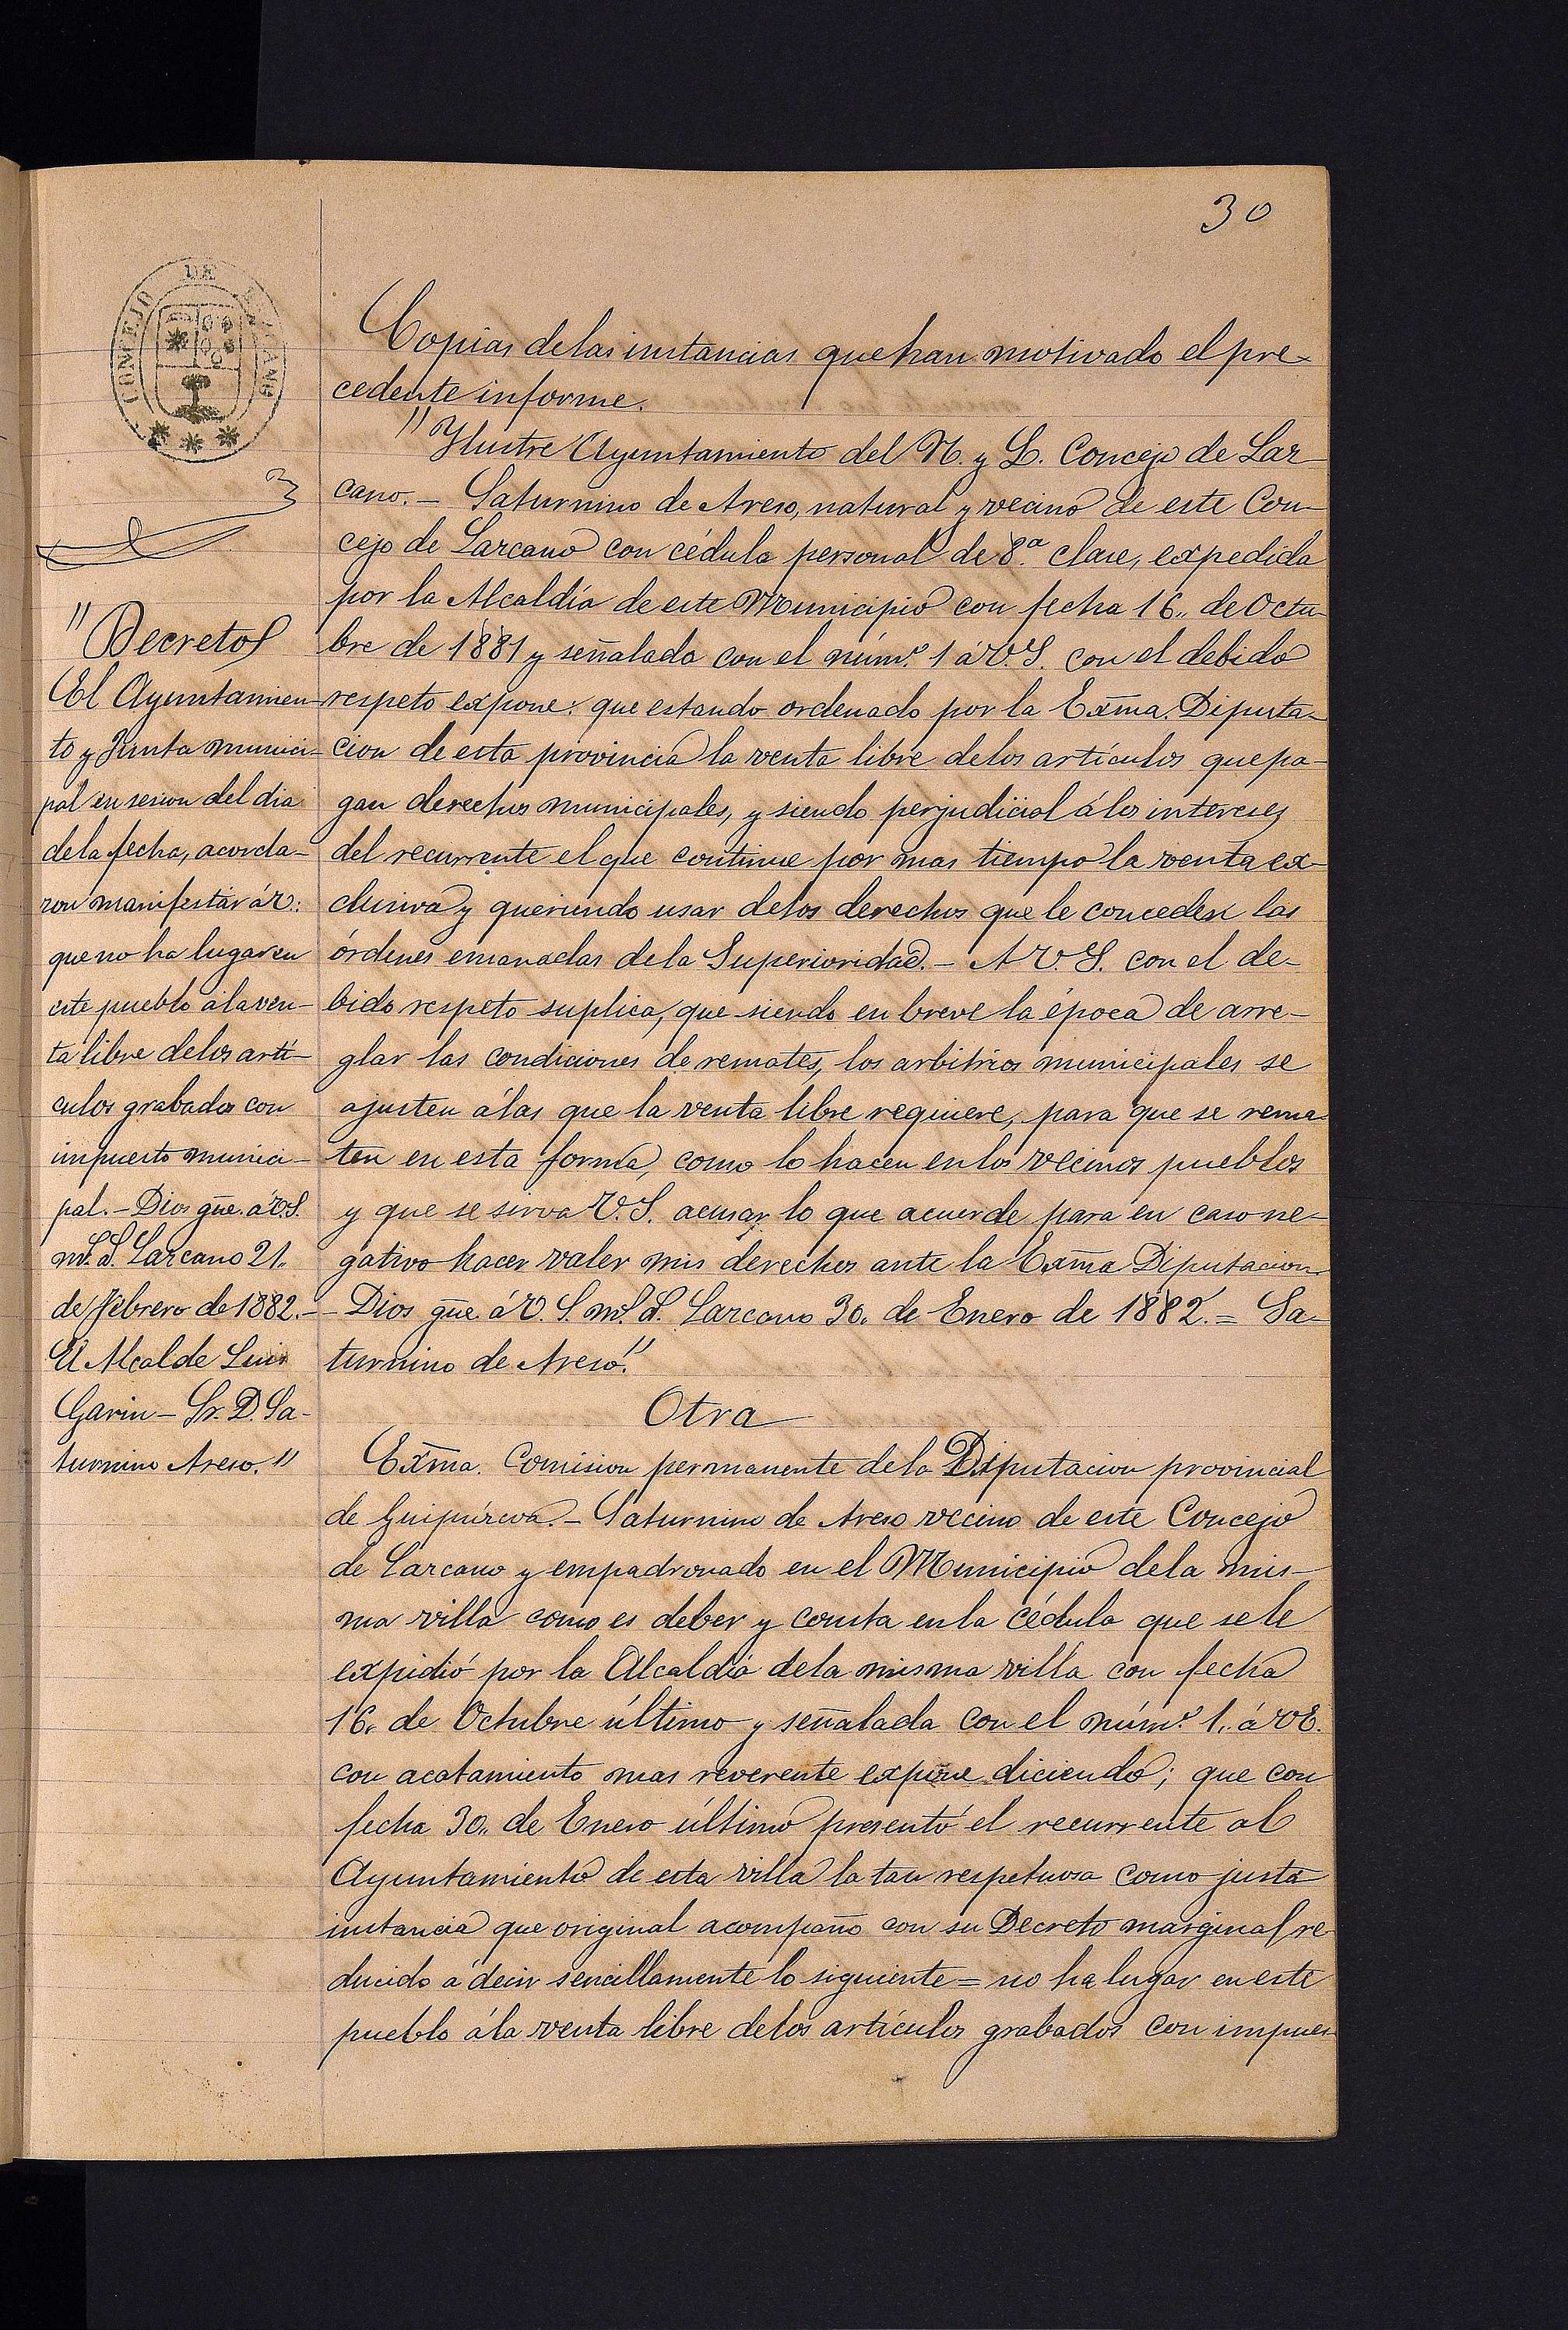 30
CONCEJO DE LAZCANO
Copias delas instancias que han motivado el pre-
cedente informe.
"Ylustre Ayuntamiento del N. y L. Concejo de Laz-
cano.- Saturnino de Areso, natural y vecino de este Con-
cejo de Lazcano con cédula personal de 8.ª clase, expedida
por la Alcaldía de este Municipio con fecha 16,, de Octu-
bre de 1881 y señalada con el núm.º 1 á V.S. con el debido
respeto expone: que estando ordenado por la Exma. Diputa-
cion de esta provincia la venta libre delos artículos que pa-
gan derechos municipales, y siendo perjudicial á los intereses
del recurrente el que continue por mas tiempo la venta ex-
clusiva y queriendo usar delos derechos que le conceden las
órdenes emanadas dela Superioridad.- A V.S. con el de-
bido respeto suplica, que siendo en breve la época de arre-
glar las condiciones de remates, los arbitrios municipales se
ajusten á las que la venta libre requiere, para que se rema-
ten en esta forma, como lo hacen en los vecinos pueblos
y que se sirva V.S. acusar lo que acuerde para en caso ne-
gativo hacer valer mis derechos ante la Exma Diputacion
- Dios gūe á V.S. m.s a.s Lazcano 30,, de Enero de 1882.= Sa-
turnino de Areso."
"Decreto
El Ayuntamien-
to y Junta munici-
pal en sesion del dia
dela fecha, acorda-
ron manifestar á V.:
que no ha lugar en
este pueblo á la ven-
ta libre delos artí-
culos grabados con
impuesto munici-
pal.- Dios gūe. á V.S.
m.s a.s Lazcano 21,,
de Febrero de 1882.-
El Alcalde Luis
Garin- Sr. D. Sa-
turnino Areso."
Otra
Exma. Comision permanente dela Diputacion provincial
de Guipúzcoa.- Saturnino de Areso vecino de este Concejo
de Lazcano y empadronado en el Municipio dela mis-
ma villa como es deber y consta en la cédula que se le
expidió por la Alcaldia dela misma villa con fecha
16,, de Octubre último y señalada con el núm.º 1,, á V.E.
con acatamiento mas reverente expone diciendo; que con
fecha 30,, de Enero último presentó el recurrente al
Ayuntamiento de esta villa la tan respetuosa como justa
instancia que original acompaño con su Decreto marginal re-
ducido á decir sencillamente lo siguiente = no ha lugar en este
pueblo á la venta libre delos artículos grabados con impues-